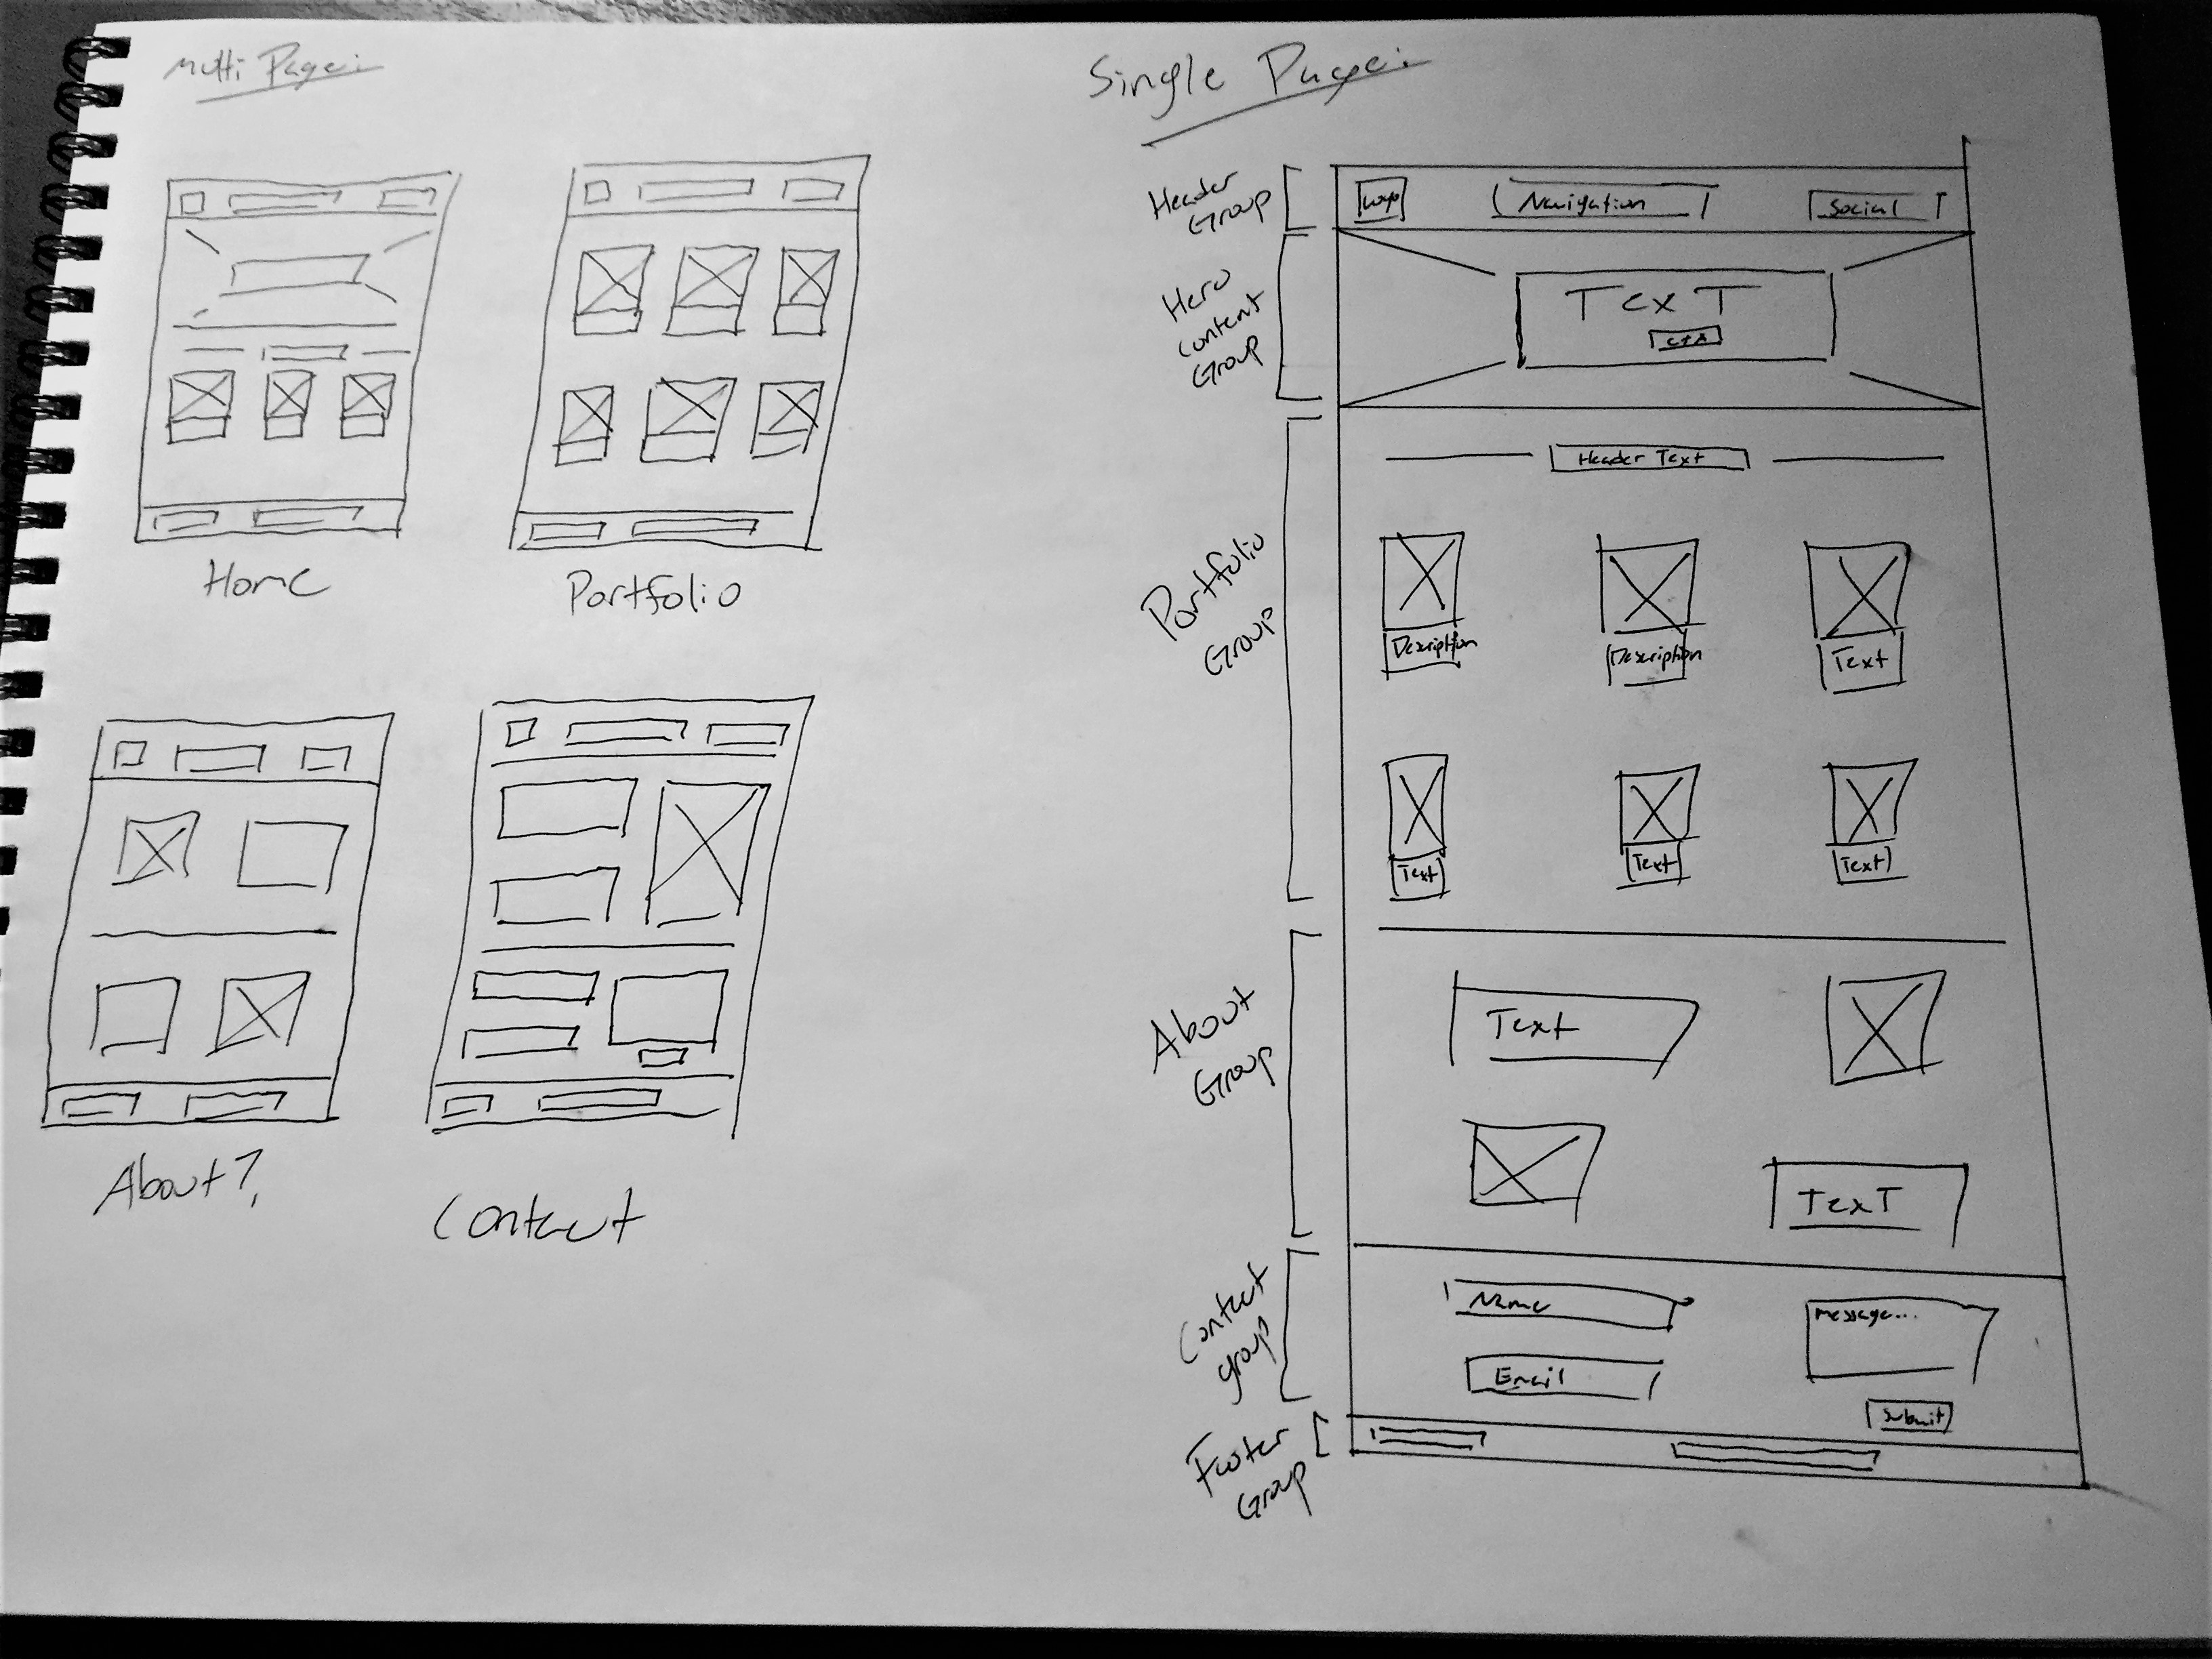 Multi Page:
Home
Portfolio
About?
Contact
Single Page:
Header
Group
Logo
Navigation
Social
Hero
Content
Group
Text
CTA
Portfolio
Group
Header Text
Description
Description
Text
Text
Text
Text
About
Group
Text
Text
Contact
group
Name
Message...
Email
Submit
Footer
Group